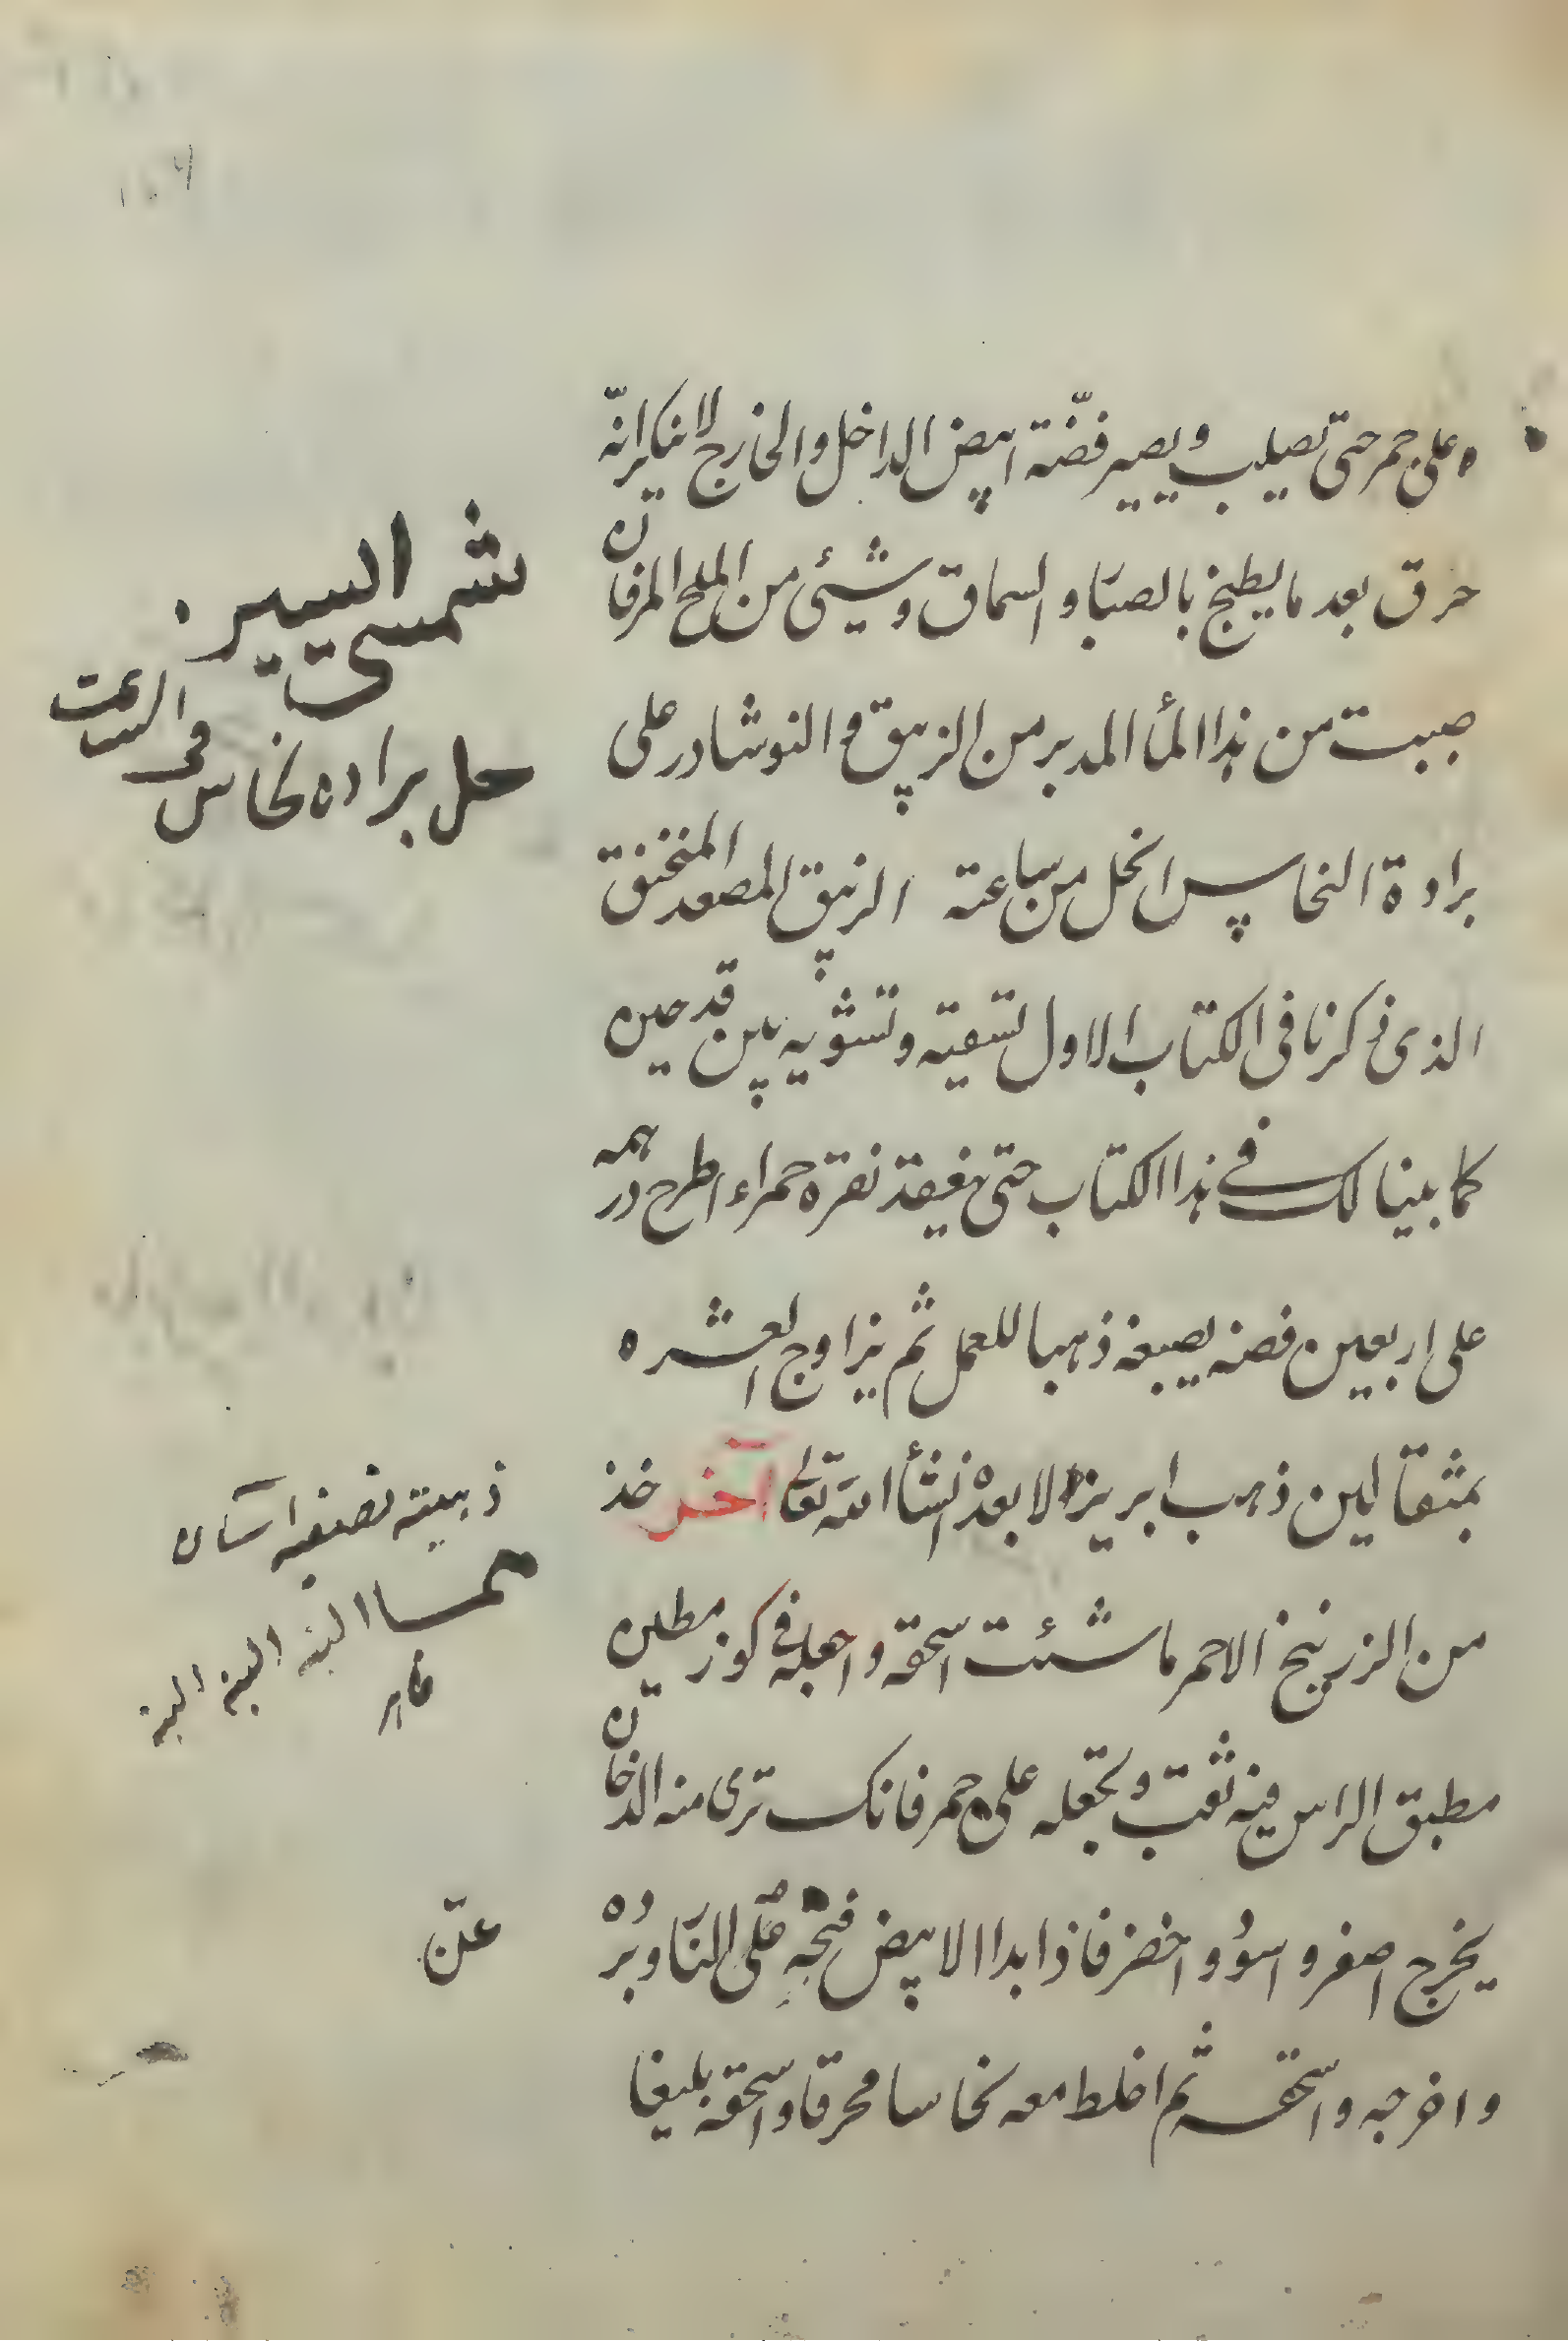 على جمر حتى تصلب ويصير فضّة ابيض الداخل والخارج لا ينكر انّه
حرق بعد ما يطبخ بالصبا والسماق وشيئ من الملح المرقان
صببت من هذا المأ المدبر من الزيبق والنوشادر على
برادة النحاس انحل من ساعته الزيبق المصعد المنخنق
الذى ذكرنا فى الكتاب الاول تسقيته وتشويه بين قدحين
كما بينا لك في هذا الكتاب حتى نقرة حمراء اطرح درهمه
على اربعين فضه يصبغه ذهبا للعمل ثم يزاوج العشره
بمثقالين ذهب ابريزا لا بعده انشأ الله تعالى آخر خذ
من الزرنيخ الاحمر ما شئت اسحقه واجعله في كوز مطين
مطبق الراس فيه ثقب وتجعله على جمر فانك ترى منه الدخان
يخرج اصفر واسود واخضر فاذا بدا الابيض فنحّه على النار وبرده
واخرجه واسحقه ثم اخلط معه نحاسا محرقا واسحقه بليغا
شمسى اليسير
حل براده نحاس فى الساعت
ذهبيته نصفه آسان
البته البته البته